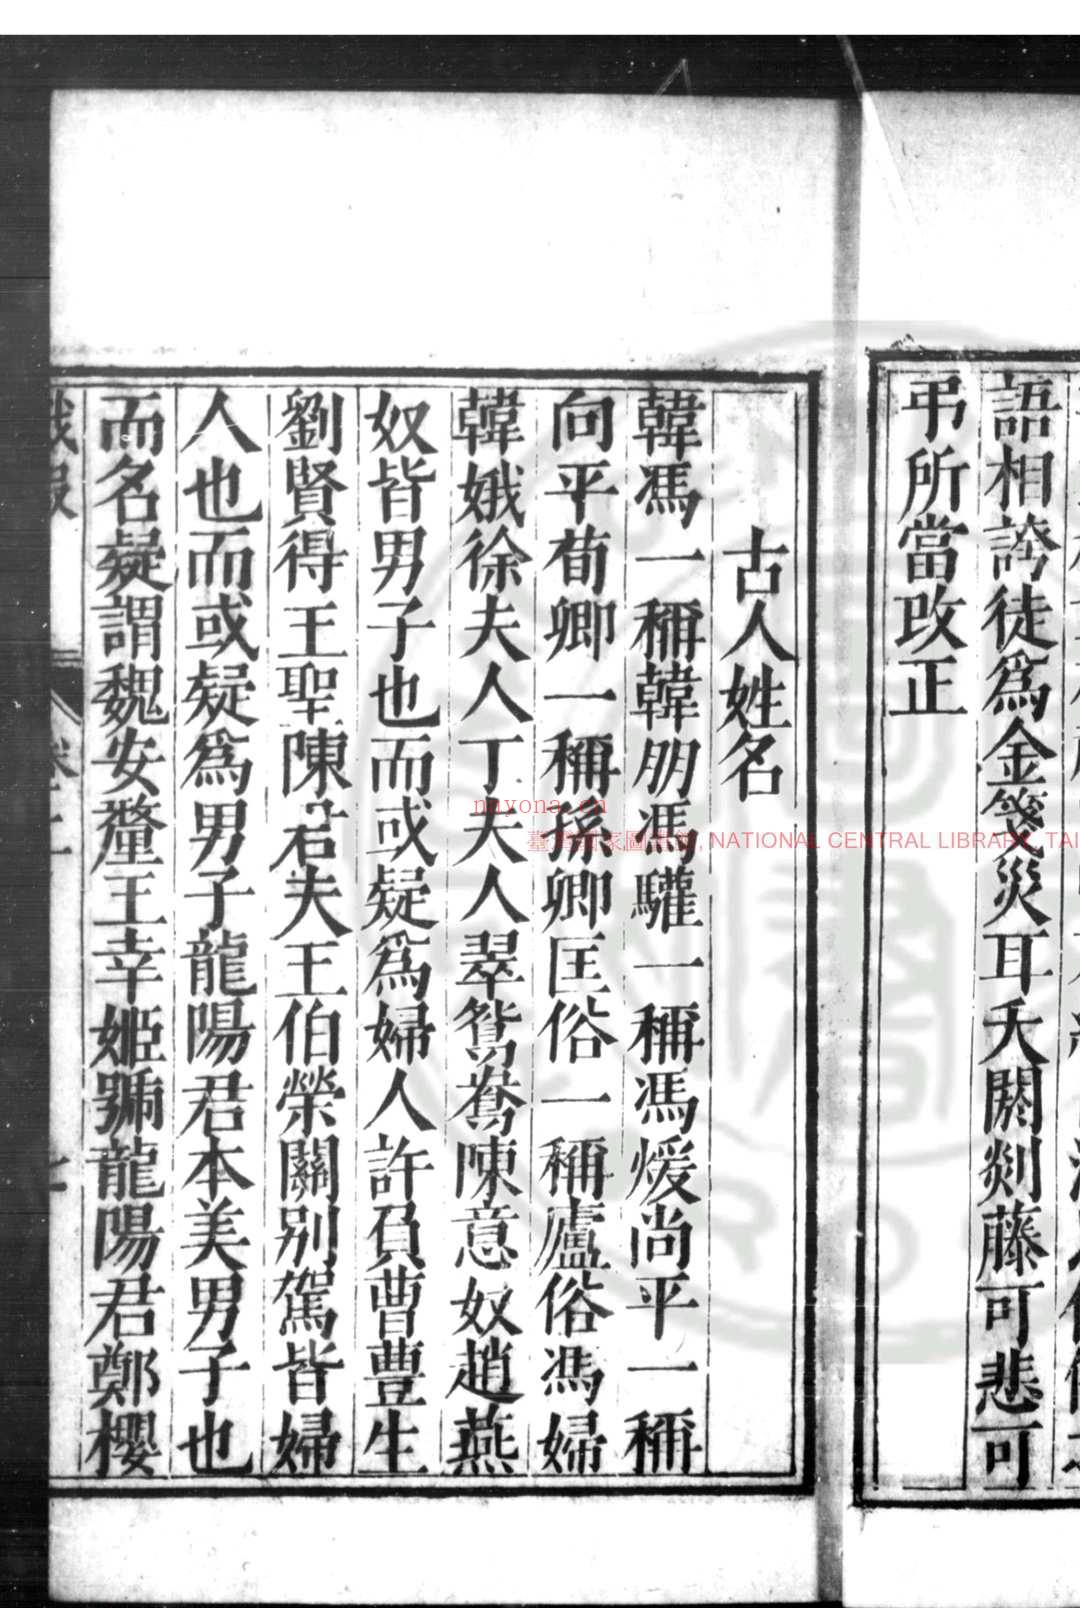 語相誇徒為金箋災耳夭閼剡藤可悲可
弔所當改正
古人姓名
韓馮一稱韓朋馮驩一稱馮煖尚平一稱
向平荀卿一稱孫卿匡俗一稱廬俗馮婦
韓娥徐夫人丁夫人翠鴛鴦陳意奴趙燕
奴皆男子也而或疑為婦人許負曹豊生
劉賢得王聖陳君夫王伯榮關別駕皆婦
人也而或疑為男子龍陽君本美男子也
而名疑謂魏安釐王幸姬號龍陽君鄭櫻
nnyona.cn
臺灣國家圖書館, NATIONAL CENTRAL LIBRARY, TAI